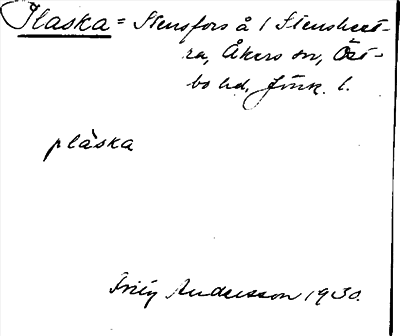 Plaska = Stensfors å i Stenshest-
ra, Åkers sn, Öst-
bo hd, Jönk. l.
plàska
Andersson 1930.